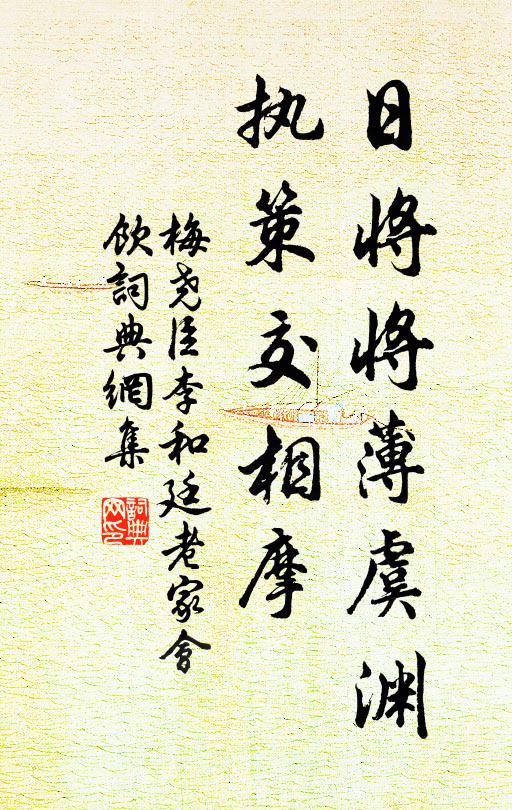 日将将薄虞渊
执策交相摩
梅尧臣李和廷老家會
飲詞典網集
詞典
网印